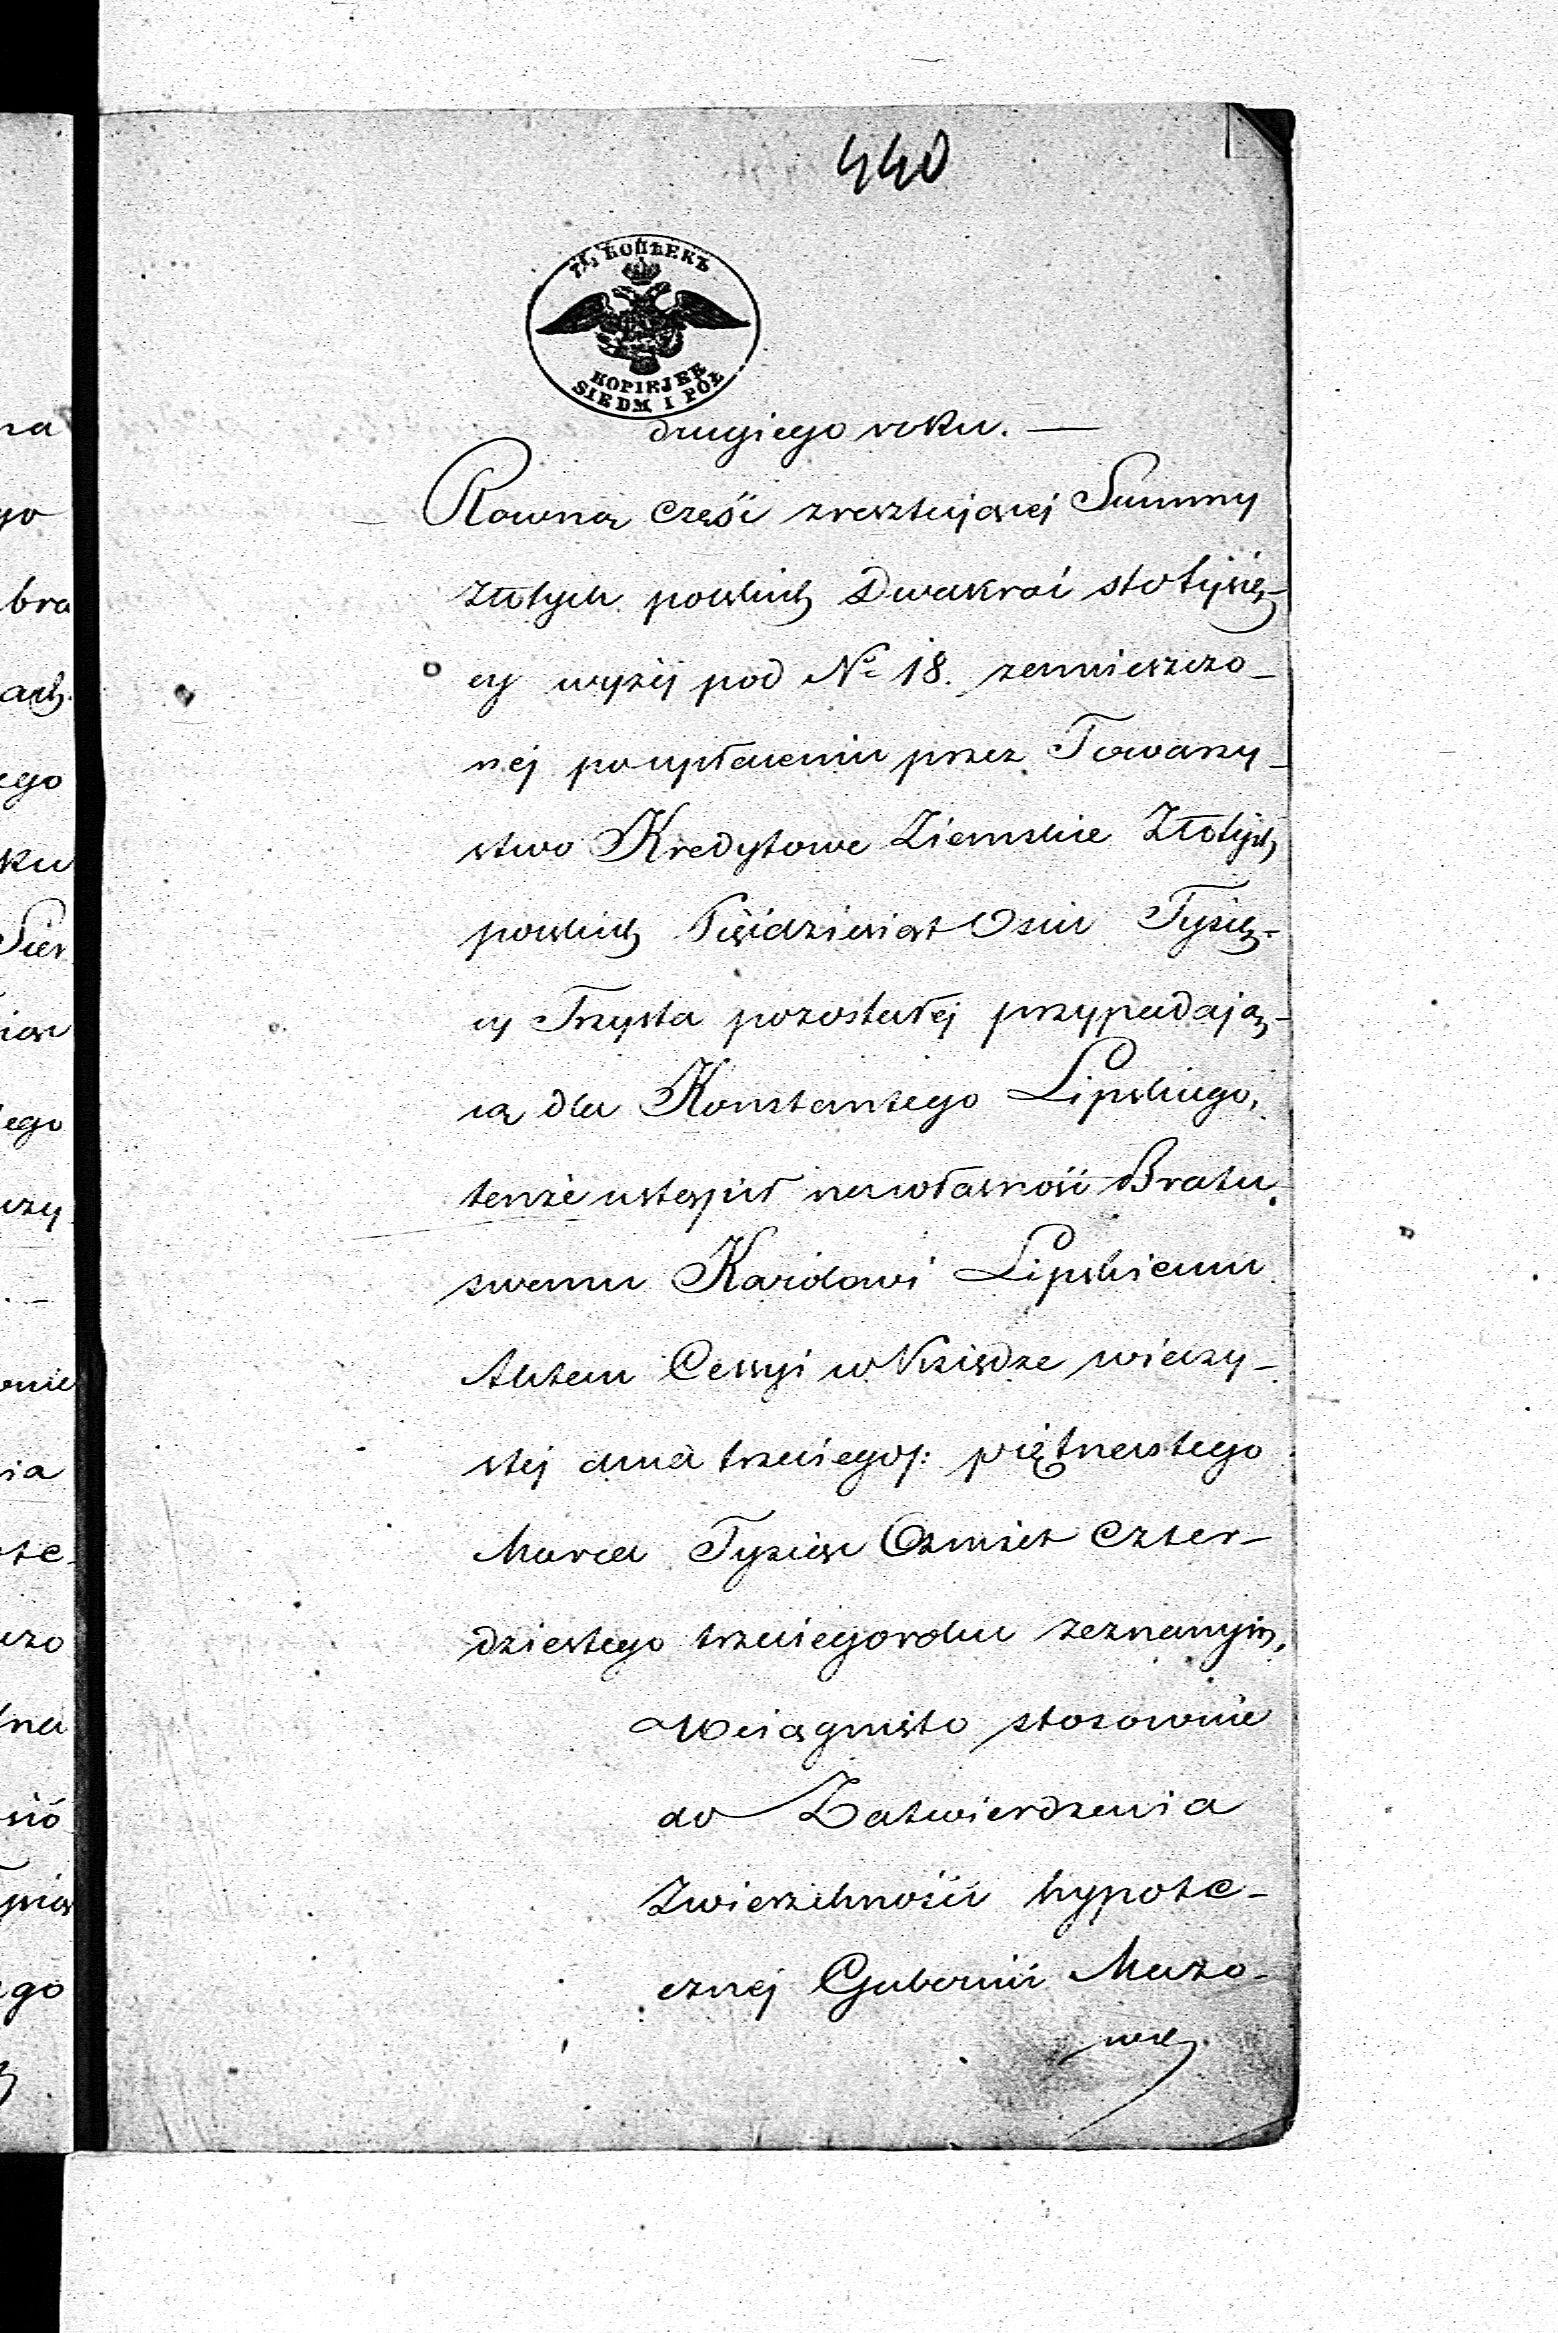 440
7½ КОПѢЕКЪ
KOPIEJEK
SIEDM I PÓŁ
drugiego roku. —
Rowną część zresztującej Summy
złotych polskich Dwakroć sto tysię-
cy wyżej pod No 18. zamieszczo-
nej po upłaceniu przez Towarzy-
stwo Kredytowe Ziemskie Złotych
polskich Pięćdziesiąt Osm Tysię-
cy Trzysta pozostałej przypadają-
cą dla Konstantego Lipskiego,
tenże ustąpił na własność Bratu
swemu Karolowi Lipskiemu
Aktem Cessyi w Księdze wieczy-
stej dnia trzeciego/: piętnastego
Marca Tysiąc Ośmset Czter-
dziestego trzeciego roku zeznanym,
Wciągnięto stosownie
do Zatwierdzenia
Zwierzchności hypote-
cznej Gubernii Mazo-
na
go
bra
ach
ego
ku
ego
czy
nia
ote-
czo
go